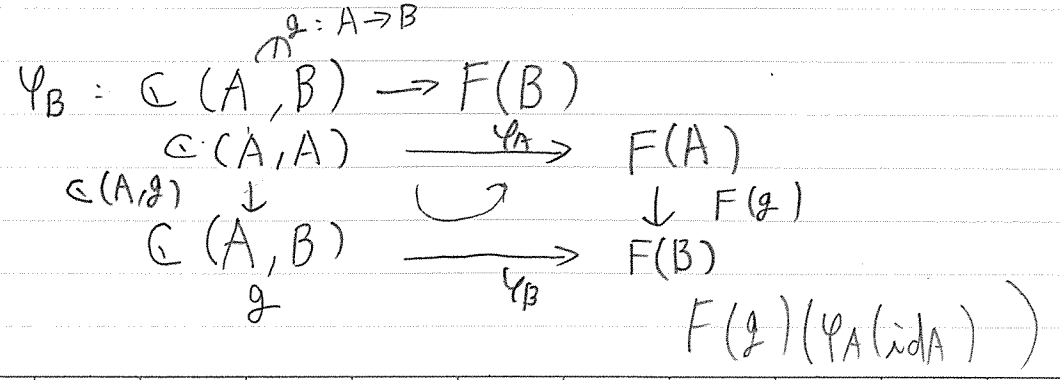 g : A → B
φ_B : ℂ (A , B) → F(B)
ℂ (A , A) φ_A → F(A)
ℂ(A,g) ↓ ↓ F(g)
ℂ (A , B) φ_B → F(B)
g
F(g)(φ_A(id_A))